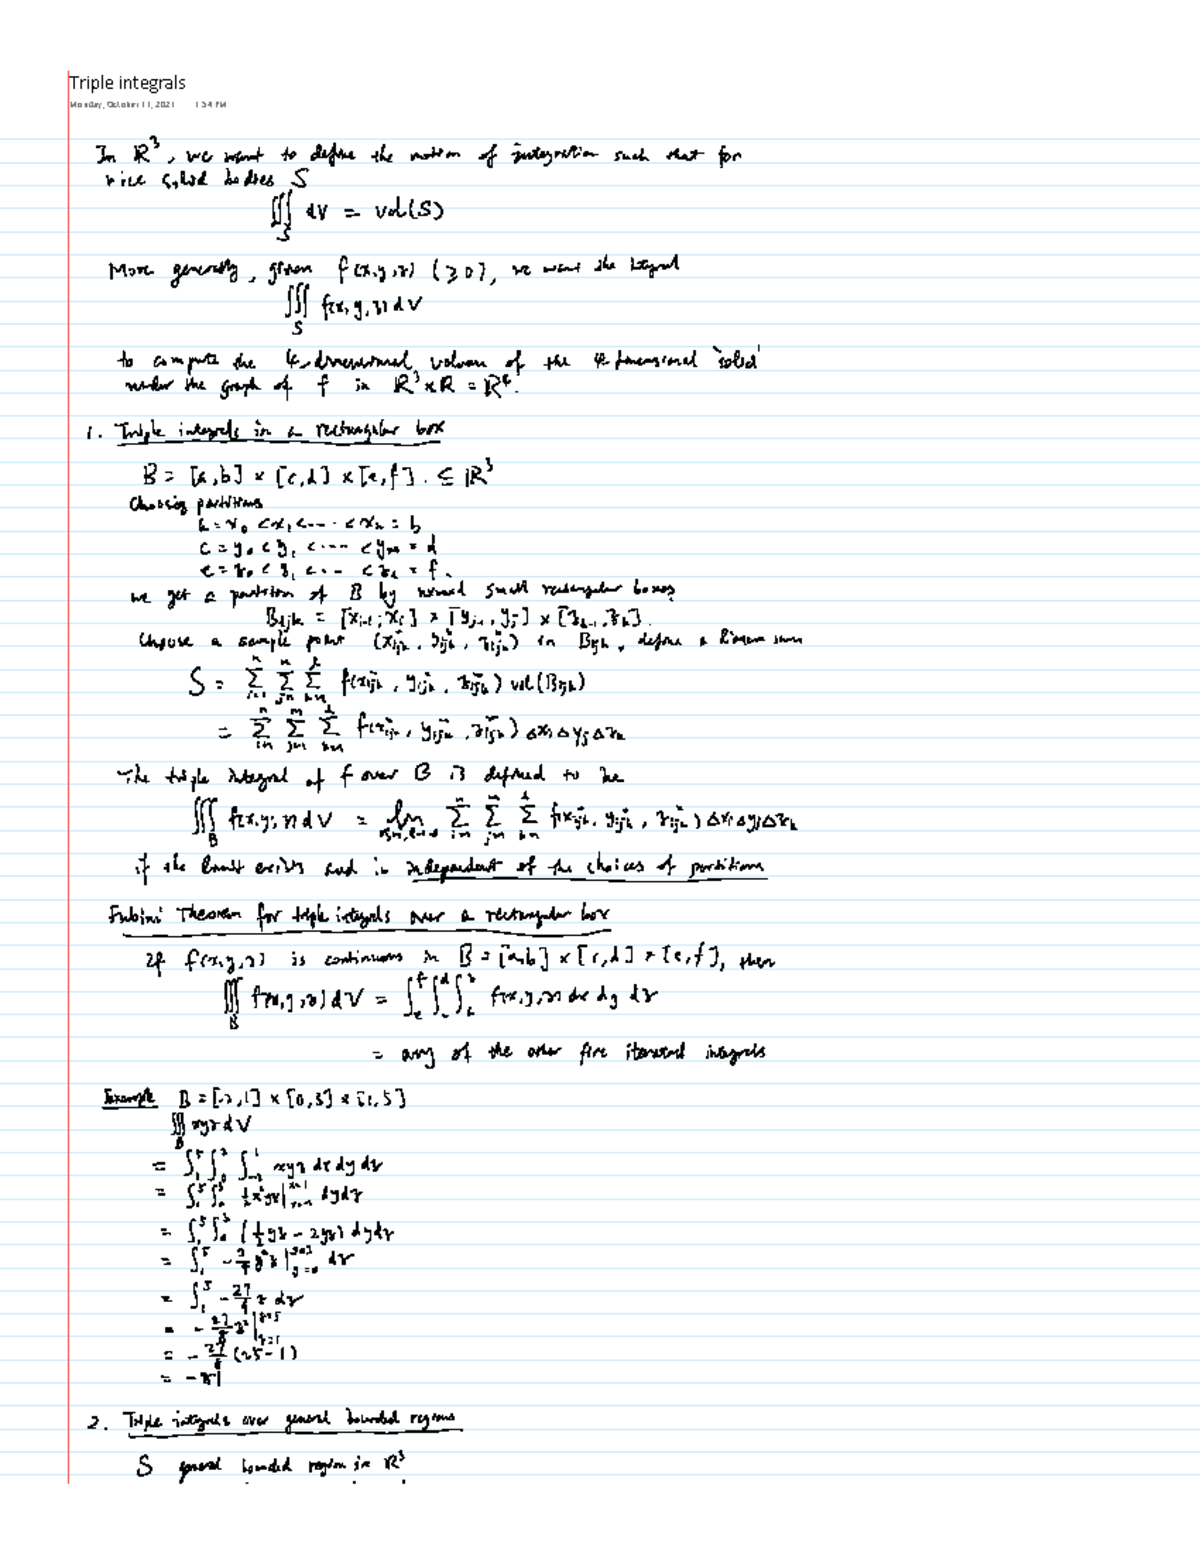 Triple integrals
Monday, October 11, 2021 1:54 PM
In ℝ³, we want to define the notion of integration such that for
nice solid bodies S
∭_S dV = vol(S)
More generally, given f(x,y,z) (≥0), we want the integral
∭_S f(x,y,z) dV
to compute the 4-dimensional volume of the 4-dimensional 'solid'
under the graph of f in ℝ³×ℝ = ℝ⁴.
1. Triple integrals in a rectangular box
B = [a,b] × [c,d] × [e,f]. ⊆ ℝ³
Choosing partitions
a = x₀ < x₁ < ... < xₙ = b
c = y₀ < y₁ < ... < yₘ = d
e = z₀ < z₁ < ... < z_l = f.
we get a partition of B by nxmxl small rectangular boxes
B_ijk = [x_{i-1}, x_i] × [y_{j-1}, y_j] × [z_{k-1}, z_k].
Choose a sample point (x*_ijk, y*_ijk, z*_ijk) in B_ijk, define a Riemann sum
S = Σ_{i=1}^n Σ_{j=1}^m Σ_{k=1}^l f(x*_ijk, y*_ijk, z*_ijk) vol(B_ijk)
= Σ_{i=1}^n Σ_{j=1}^m Σ_{k=1}^l f(x*_ijk, y*_ijk, z*_ijk) Δx_i Δy_j Δz_k
The triple integral of f over B is defined to be
∭_B f(x,y,z) dV = lim_{n,m,l→∞} Σ_{i=1}^n Σ_{j=1}^m Σ_{k=1}^l f(x*_ijk, y*_ijk, z*_ijk) Δx_i Δy_j Δz_k
if the limit exists and is independent of the choices of partitions
Fubini Theorem for triple integrals over a rectangular box
If f(x,y,z) is continuous in B = [a,b] × [c,d] × [e,f], then
∭_B f(x,y,z) dV = ∫_e^f ∫_c^d ∫_a^b f(x,y,z) dx dy dz
= any of the other five iterated integrals
Example B = [-2,1] × [0,3] × [1,5]
∭_B xyz dV
= ∫_1^5 ∫_0^3 ∫_{-2}^1 xyz dx dy dz
= ∫_1^5 ∫_0^3 ½x²yz |_{x=-2}^{x=1} dy dz
= ∫_1^5 ∫_0^3 (½yz - 2yz) dy dz
= ∫_1^5 -¾y²z |_{y=0}^{y=3} dz
= ∫_1^5 -27/4 z dz
= -27/8 z² |_{z=1}^{z=5}
= -27/8 (25-1)
= -81
2. Triple integrals over general bounded regions
S general bounded region in ℝ³